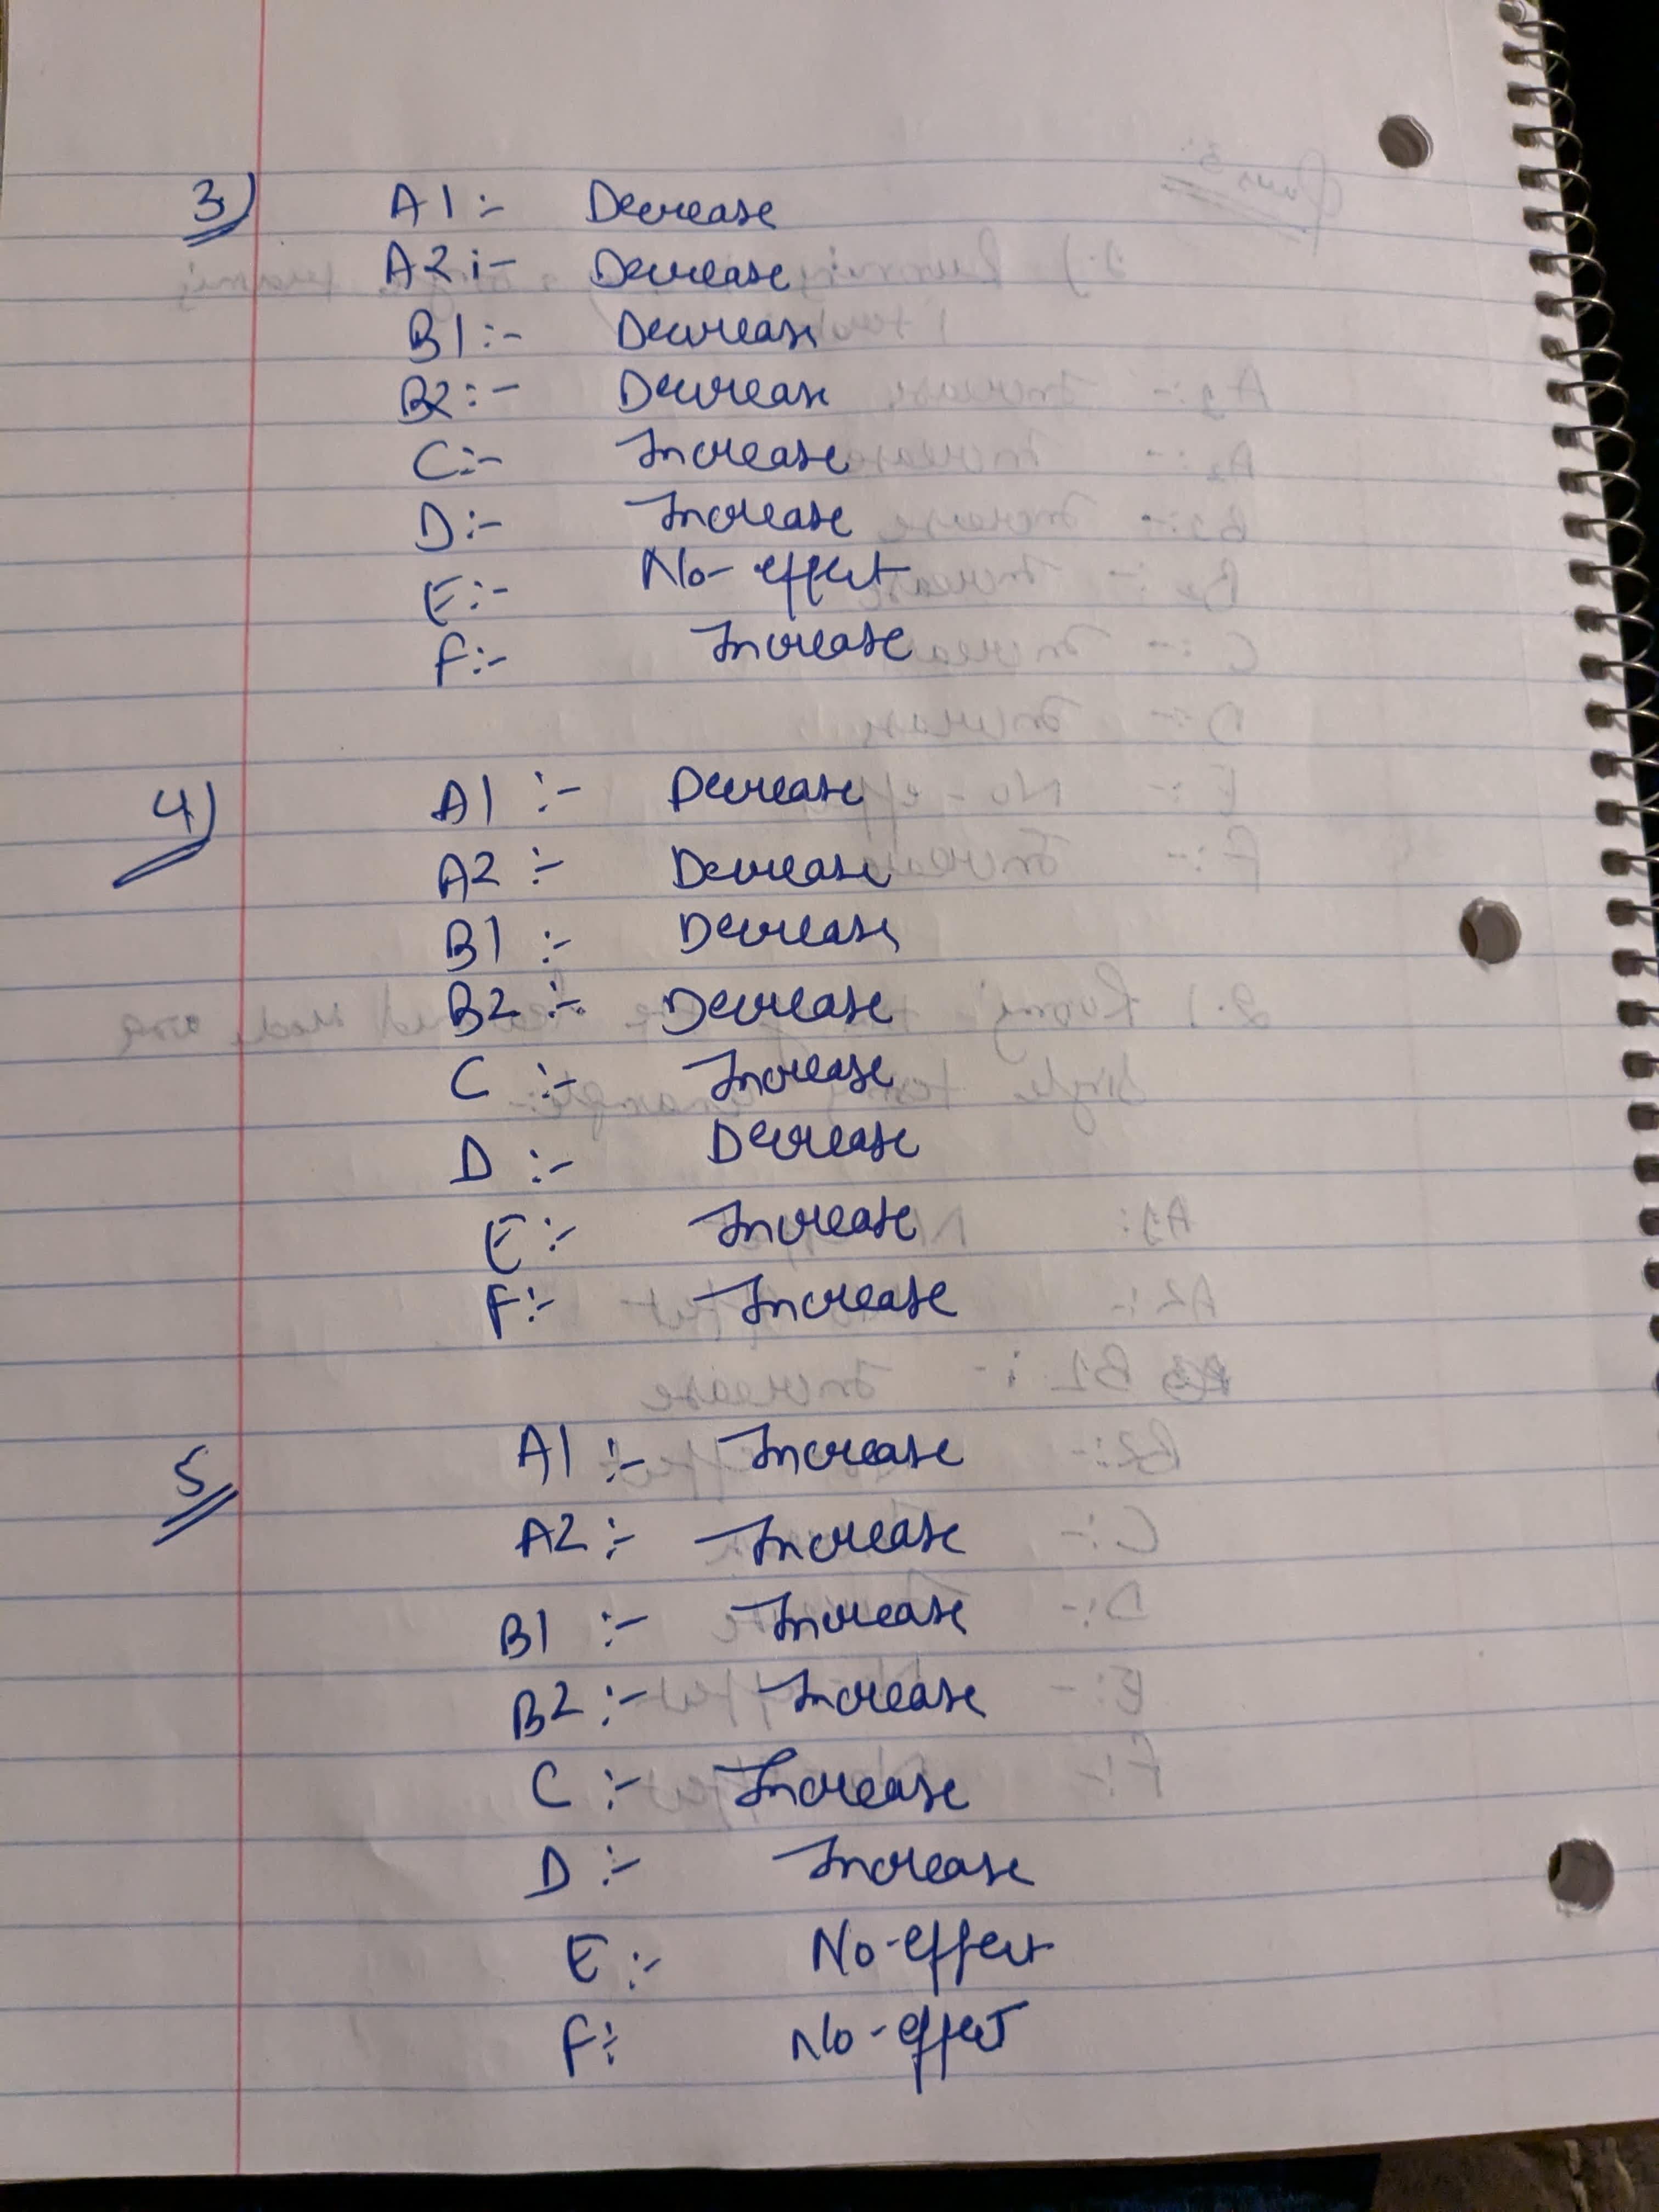 3)
A1:- Decrease
A2:- Decrease
B1:- Decrease
B2:- Decrease
C:- Increase
D:- Increase
E:- No-effect
F:- Increase
4)
A1:- Decrease
A2:- Decrease
B1:- Decrease
B2:- Decrease
C:- Increase
D:- Decrease
E:- Increase
F:- Increase
5
A1:- Increase
A2:- Increase
B1:- Increase
B2:- Increase
C:- Increase
D:- Increase
E:- No-effect
F:- No-effect